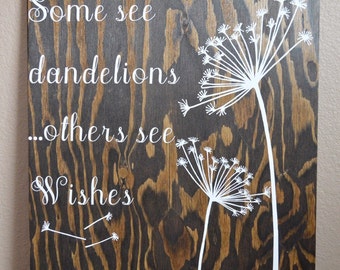 Some see
dandelions
...others see
Wishes